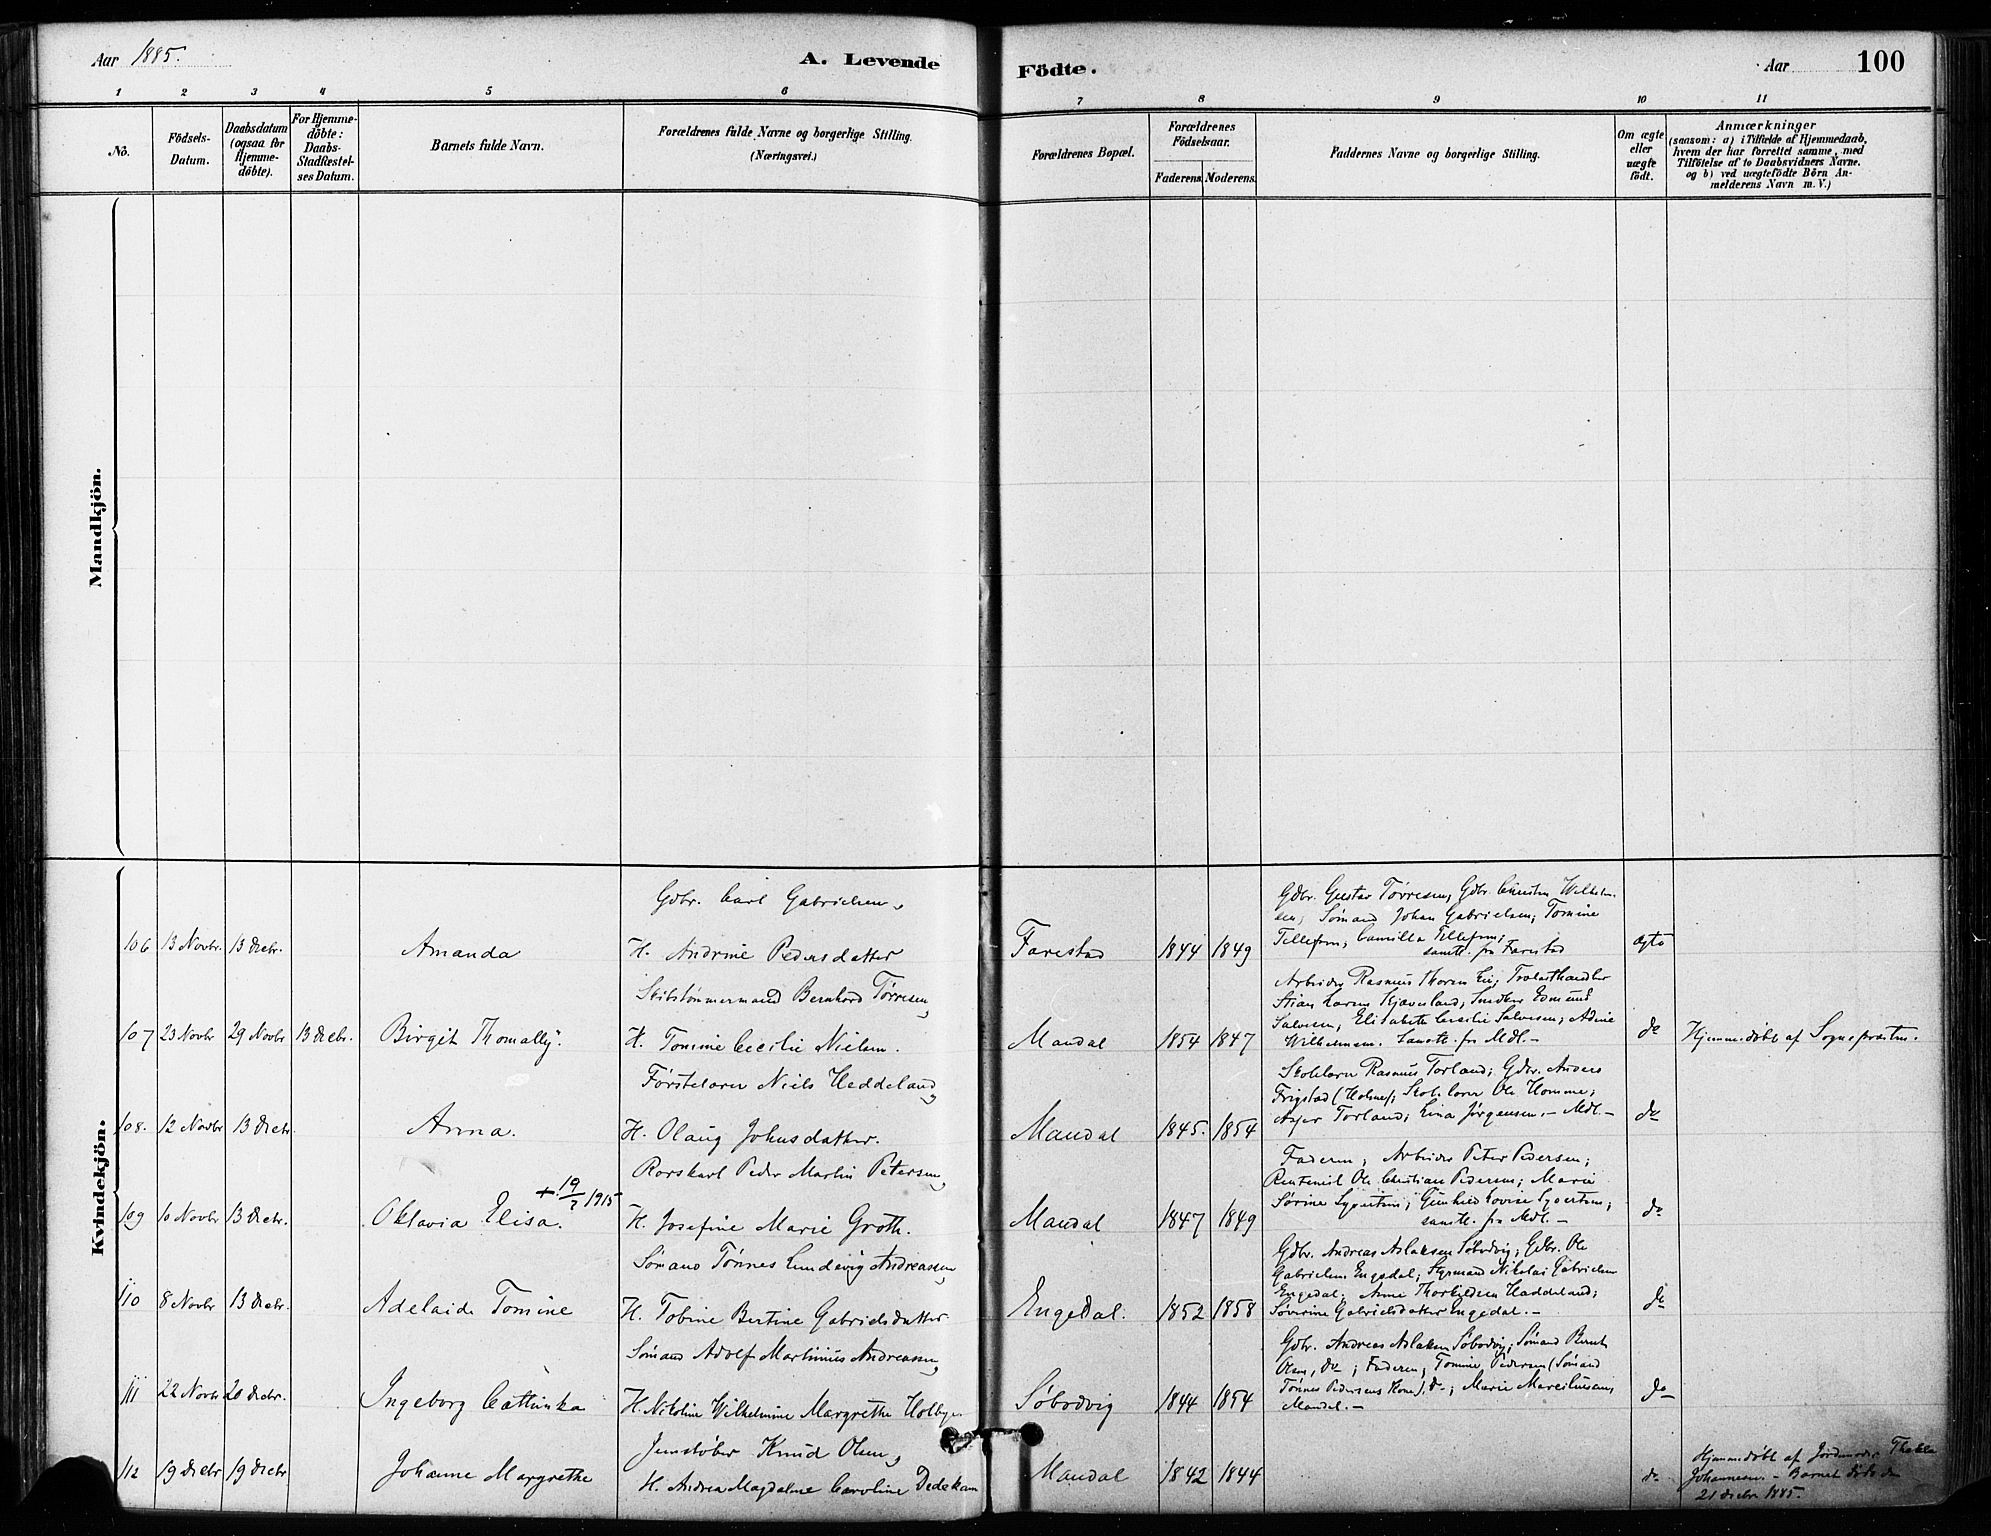 Aar 1885.
A. Levende
Födte.
Aar
100
1 2 3 4 5 6 7 8 9 10 11
No.
Födsels-
Datum.
Daabsdatum
(ogsaa for
Hjemme-
døbte).
For Hjemme-
døbte:
Daabs-
Stadfæstel-
ses Datum.
Barnets fulde Navn.
Forældrenes fulde Navne og borgerlige Stilling.
(Næringsvei.)
Forældrenes Bopæl.
Forældrenes
Födselsaar.
Faderens. Moderens.
Faddernes Navne og borgerlige Stilling.
Om ægte
eller
uægte
födt.
Anmærkninger
(saasom: a) i Tilfælde af Hjemmedaab,
hvem der har forrettet samme, med
Tilföielse af to Daabsvidners Navne.
og b) ved uægtefödte Börn An-
melderens Navn m. V.)
Mandkjön.
Kvindekjön.
Gdbr. Carl Gabrielsen,
106 13 Novbr. 13 Decbr. Amanda H. Andrine Pedersdatter Farestad 1844 1849
Gdbr. Gustav Tørresen, Gdbr. Christen Wilhelm-
sen, Sømand Johan Gabrielsen, Tomine
Tellefsen; Camilla Tellefsen;
samtl. fra Farestad
ægte
Skibstømmermand Bernhard Tørresen,
107 23 Novbr 29 Novbr 13 Decbr. Birgit Thomally. H. Tomine Cecilie Nielsen. Mandal 1854 1847
Arbeider Rasmus Thorsen Lie; Trælasthandler
Stian Larsen Kjæveland; Snedker Edmund
Salvesen; Elisabeth Cecilie Salvesen; Adine
Wilhelmsen. Samtl. fra Mdl. –
do Hjemmedøbt af Sognepræsten.
Førstelærer Niels Heddeland,
108. 12 Novbr 13 Decbr. Anna. H. Olaug Johnsdatter. Mandal 1845. 1854
Skolelærer Rasmus Torland; Gdbr. Anders
Frigstad (Holme); Skolelærer Ole Homme;
Torland; Lina Jørgensen. – Mdl. –
do
Rorskarl Peder Martin Petersen,
109 10 Novbr 13 Decbr. Oktavia Elisa. + 19/7 1915 H. Josefine Marie Groth. Mandal 1847 1849
Faderen; Arbeider Peter Pedersen;
Ole Christian Pedersen; Marie
Sørine Syvertsen; Gunhild Lovise Syvertsen;
samtl. fra Mdl. –
do
Sømand Tønnes Lundevig Andreassen,
110 8 Novbr 13 Decbr. Adelaide Tomine H. Tobine Bertine Gabrielsdatter Engedal. 1852 1858
Gdbr. Andreas Aslaksen Søbodvig; Gdbr. Ole
Gabrielsen Engedal; Styrmand Nikolai Gabrielsen
Engedal; Anne Thorkildsen Haddeland;
Severine Gabrielsdatter Engedal. –
do
Sømand Adolf Martinius Andreassen,
111 22 Novbr 20 Decbr. Ingeborg Cattinka H. Nikoline Wilhelmine Margrethe Holby Søbodvig 1844 1854
Gdbr. Andreas Aslaksen Søbodvig; Sømand Bernt
Olsen, do; Faderen; Tomine Pedersen (Sømand
Tønnes Pedersens Kone), do; Marie
Mandal. –
do
Jernstøber Knud Olsen,
112 19 Decbr 19 Decbr Johanne Margrethe H. Andrea Magdalene Caroline Dedekam Mandal 1842 1844
do
Hjemmedøbt af Jordmoder Thekla
Johannesen. – Barnet døde den
21 Decbr. 1885.